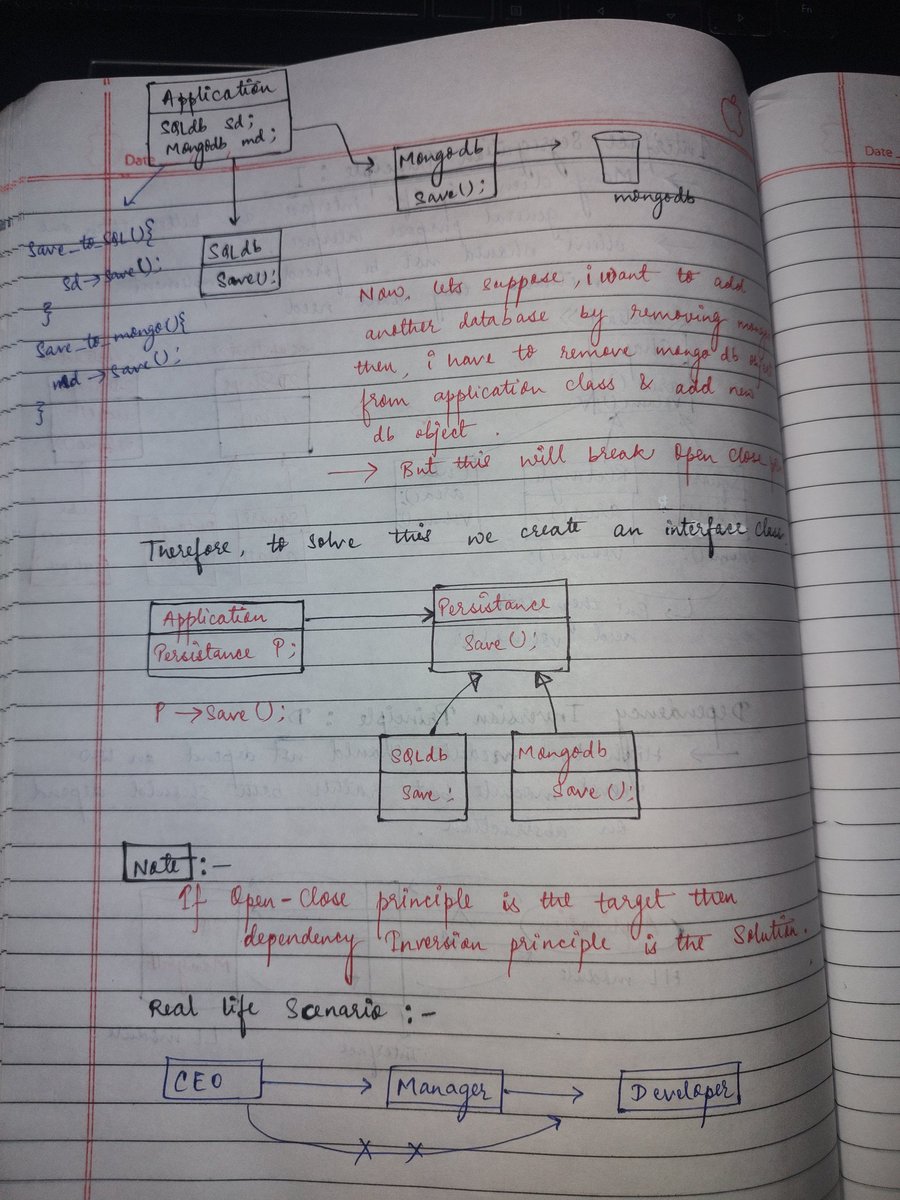 Application
SQLdb sd;
Mongodb md;
Date
Date
Mongodb
Save();
mongodb
SQLdb
Save();
Save_to_SQL(){
sd→save();
}
Save_to_mongo(){
md→save();
}
Now, lets suppose, i want to add
another database by removing
then, i have to remove mongo db
from application class & add new
db object.
→ But this will break Open close
Therefore, to solve this we create an interface class
Application
Persistance P;
P→Save();
Persistance
Save();
SQLdb
Save;
Mongodb
Save();
Note :-
If Open-Close principle is the target then
dependency Inversion principle is the Solution.
Real life Scenario :-
CEO
Manager
Developer
X X
Dependency Inversion Principle : D